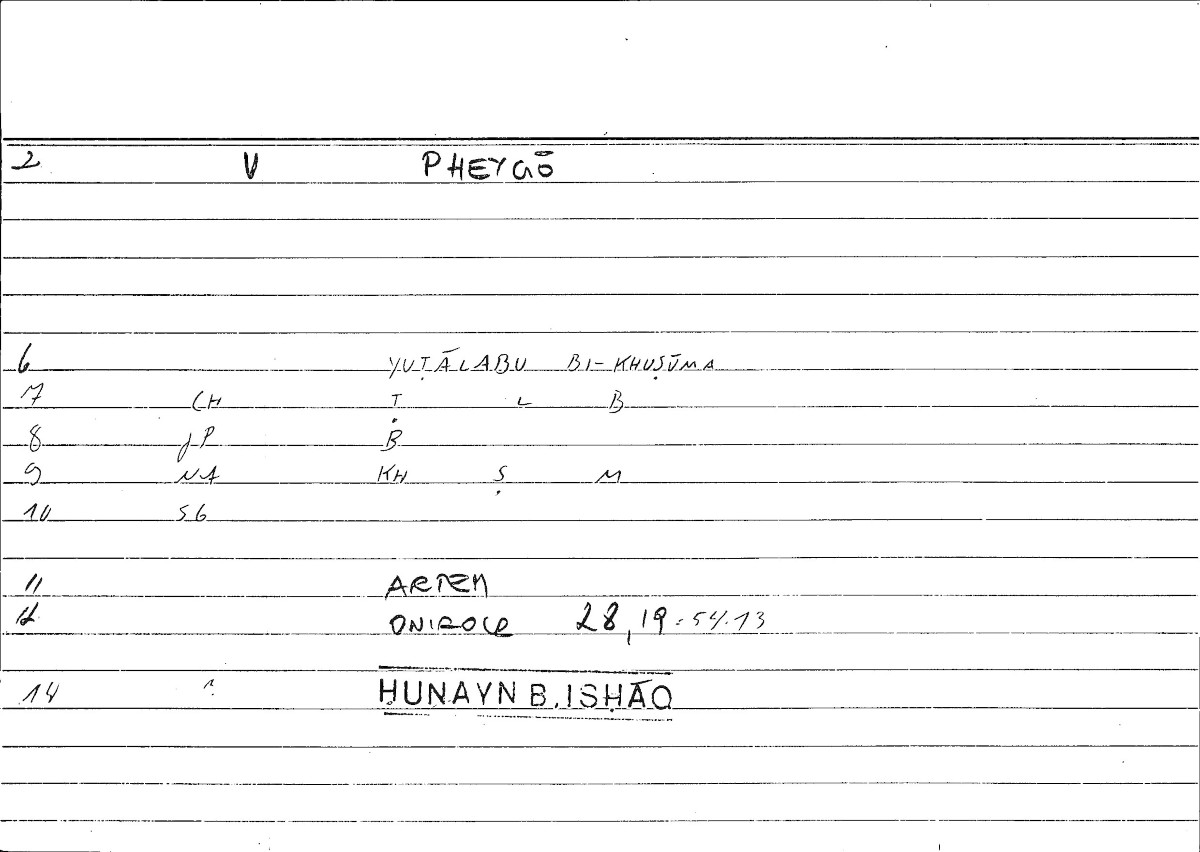 2 V PHEYGŌ
6 YUṬĀLABU BI-KHUṢŪMA
7 CH Ṭ L B
8 JP B
9 NA KH Ṣ M
10 SG
11 ARTEM
12 ONIROCR 28,19=54.13
14 1. ḤUNAYN B. ISḤĀQ